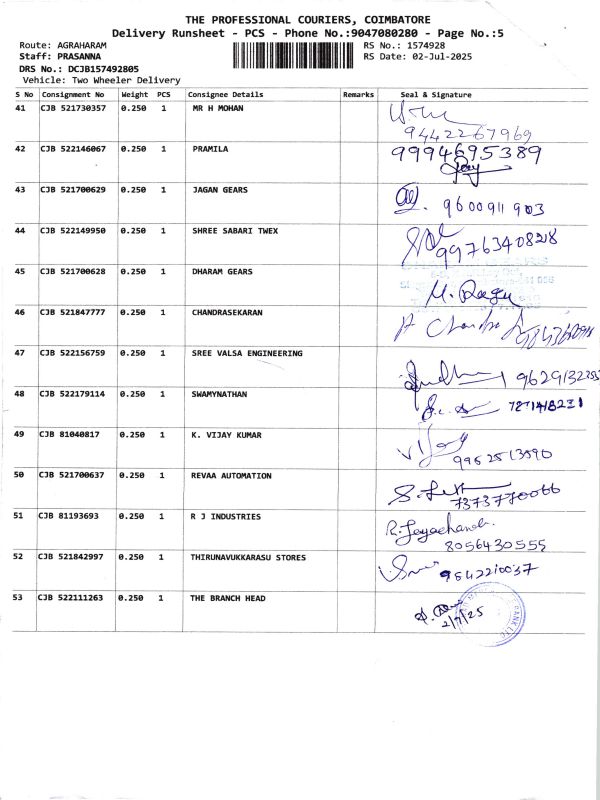 THE PROFESSIONAL COURIERS, COIMBATORE
Delivery Runsheet - PCS - Phone No.:9047080280 - Page No.:5
Route: AGRAHARAM RS No.: 1574928
Staff: PRASANNA RS Date: 02-Jul-2025
DRS No.: DCJB157492805
Vehicle: Two Wheeler Delivery
S No Consignment No Weight PCS Consignee Details Remarks Seal & Signature
41 CJB 521730357 0.250 1 MR H MOHAN
9442267969
42 CJB 522146067 0.250 1 PRAMILA 9994695389
43 CJB 521700629 0.250 1 JAGAN GEARS
9600911903
44 CJB 522149950 0.250 1 SHREE SABARI TWEX
9976340828
45 CJB 521700628 0.250 1 DHARAM GEARS
M. Ragu
46 CJB 521847777 0.250 1 CHANDRASEKARAN
47 CJB 522156759 0.250 1 SREE VALSA ENGINEERING
9629132355
48 CJB 522179114 0.250 1 SWAMYNATHAN
49 CJB 81040817 0.250 1 K. VIJAY KUMAR
Vijay
9952513590
50 CJB 521700637 0.250 1 REVAA AUTOMATION
7373770066
51 CJB 81193693 0.250 1 R J INDUSTRIES
R. Jayachandr
8056430555
52 CJB 521842997 0.250 1 THIRUNAVUKKARASU STORES
9842210037
53 CJB 522111263 0.250 1 THE BRANCH HEAD
2/7/25